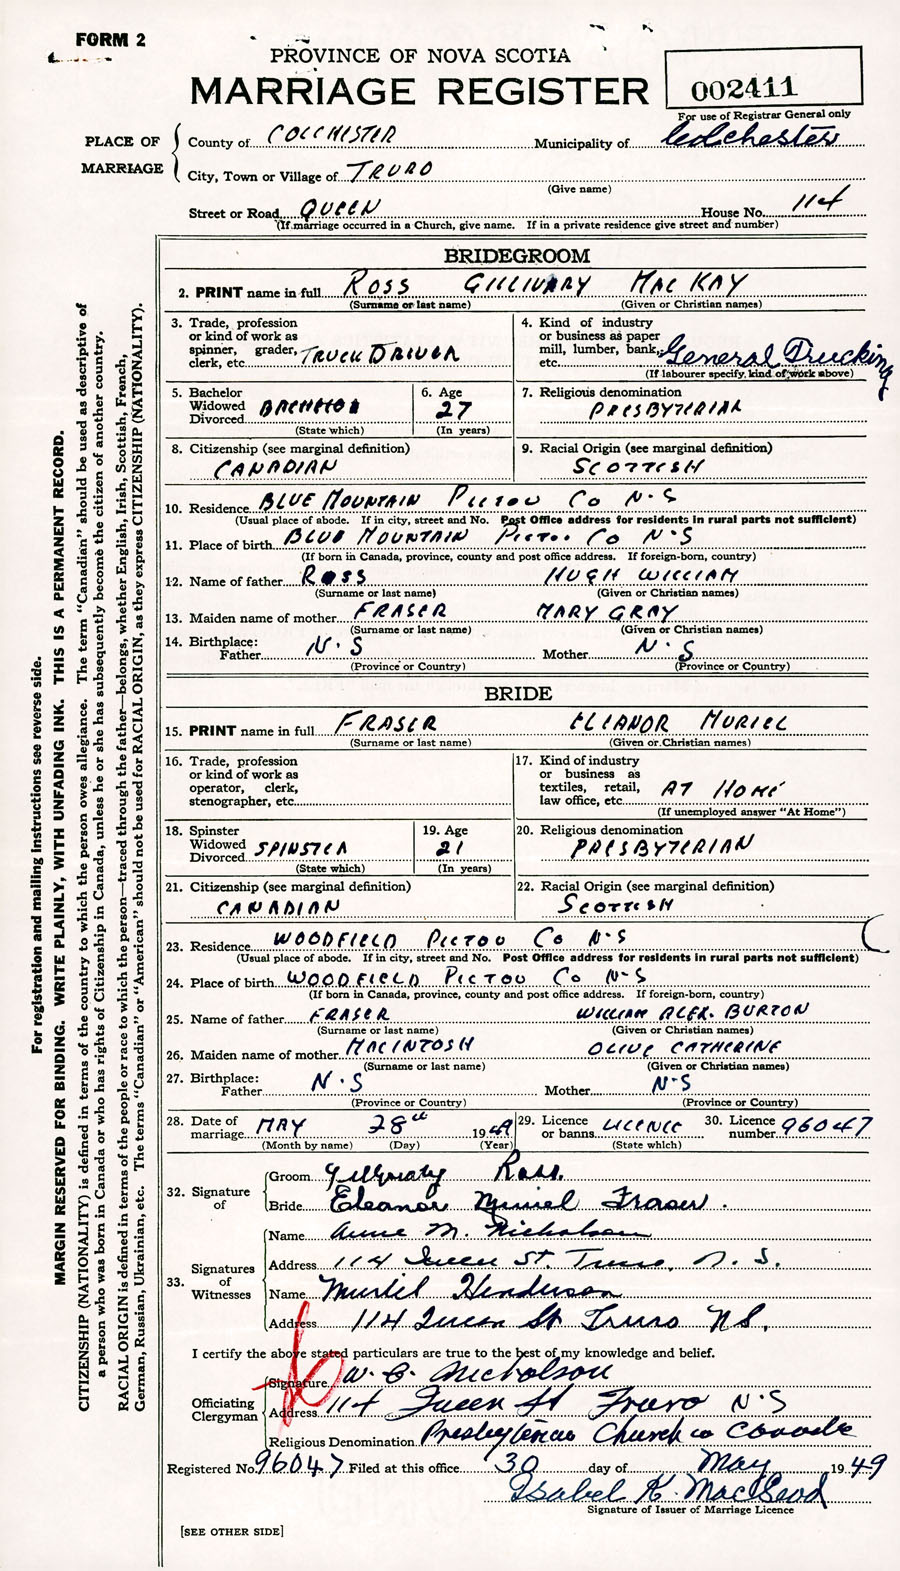 FORM 2
PROVINCE OF NOVA SCOTIA
MARRIAGE REGISTER
002411
For use of Registrar General only
PLACE OF MARRIAGE
County of COLCHESTER Municipality of Colchester
City, Town or Village of TRURO
(Give name)
Street or Road QUEEN House No. 114
(If marriage occurred in a Church, give name. If in a private residence give street and number)
BRIDEGROOM
2. PRINT name in full ROSS GILLIVARY MACKAY
(Surname or last name) (Given or Christian names)
3. Trade, profession
or kind of work as
spinner, grader,
clerk, etc. TRUCK DRIVER
4. Kind of industry
or business as paper
mill, lumber, bank,
etc. General Trucking
(If labourer specify kind of work above)
5. Bachelor
Widowed
Divorced BACHELOR
(State which)
6. Age
27
(In years)
7. Religious denomination
PRESBYTERIAN
8. Citizenship (see marginal definition)
CANADIAN
9. Racial Origin (see marginal definition)
SCOTTISH
10. Residence BLUE MOUNTAIN PICTOU CO N.S
(Usual place of abode. If in city, street and No. Post Office address for residents in rural parts not sufficient)
11. Place of birth BLUE MOUNTAIN PICTOU CO N.S
(If born in Canada, province, county and post office address. If foreign-born, country)
12. Name of father ROSS HUGH WILLIAM
(Surname or last name) (Given or Christian names)
13. Maiden name of mother FRASER MARY GRAY
(Surname or last name) (Given or Christian names)
14. Birthplace:
Father N.S Mother N.S
(Province or Country) (Province or Country)
BRIDE
15. PRINT name in full FRASER ELEANOR MURIEL
(Surname or last name) (Given or Christian names)
16. Trade, profession
or kind of work as
operator, clerk,
stenographer, etc.
17. Kind of industry
or business as
textiles, retail,
law office, etc. AT HOME
(If unemployed answer "At Home")
18. Spinster
Widowed
Divorced SPINSTER
(State which)
19. Age
21
(In years)
20. Religious denomination
PRESBYTERIAN
21. Citizenship (see marginal definition)
CANADIAN
22. Racial Origin (see marginal definition)
SCOTTISH
23. Residence WOODFIELD PICTOU CO N.S
(Usual place of abode. If in city, street and No. Post Office address for residents in rural parts not sufficient)
24. Place of birth WOODFIELD PICTOU CO N-S
(If born in Canada, province, county and post office address. If foreign-born, country)
25. Name of father FRASER WILLIAM ALEX. BURTON
(Surname or last name) (Given or Christian names)
26. Maiden name of mother MACINTOSH OLIVE CATHERINE
(Surname or last name) (Given or Christian names)
27. Birthplace:
Father N.S Mother N.S
(Province or Country) (Province or Country)
28. Date of
marriage MAY 28th 1949
(Month by name) (Day) (Year)
29. Licence
or banns LICENCE
(State which)
30. Licence
number 96047
32. Signature of
Groom Ross.
Bride Eleanor Muriel Fraser.
33. Signatures of Witnesses
Name Anne M. Nicholson
Address 114 Queen St. Truro, N. S.
Name Muriel Henderson
Address 114 Queen St Truro N.S.
I certify the above stated particulars are true to the best of my knowledge and belief.
Officiating Clergyman
Signature W. C. Nicholson
Address 114 Queen St Truro N.S
Religious Denomination Presbyterian Church in Canada
Registered No. 96047 Filed at this office 30 day of May 1949
Isabel K. MacLeod
Signature of Issuer of Marriage Licence
[SEE OTHER SIDE]
For registration and mailing instructions see reverse side.
MARGIN RESERVED FOR BINDING. WRITE PLAINLY, WITH UNFADING INK. THIS IS A PERMANENT RECORD.
CITIZENSHIP (NATIONALITY) is defined in terms of the country to which the person owes allegiance. The term "Canadian" should be used as descriptive of
a person who was born in Canada or who has rights of Citizenship in Canada, unless he or she has subsequently become the citizen of another country.
RACIAL ORIGIN is defined in terms of the people or race to which the person—traced through the father—belongs, whether English, Irish, Scottish, French,
German, Russian, Ukrainian, etc. The terms "Canadian" or "American" should not be used for RACIAL ORIGIN, as they express CITIZENSHIP (NATIONALITY).